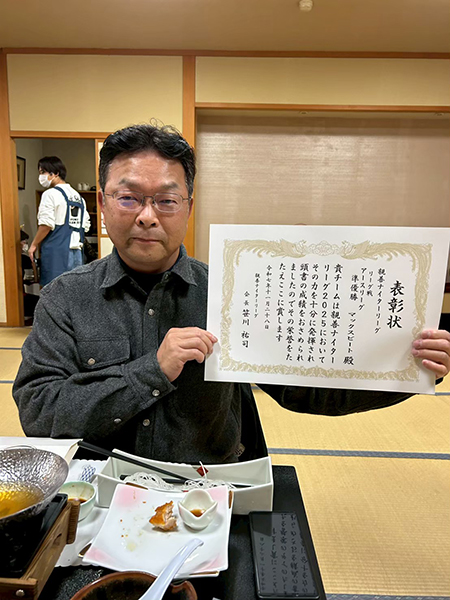 表彰状
親善ナイターリーグ
リーグ戦
アースリーグ
準優勝 マックスピード殿
貴チームは親善ナイター
リーグ2025において
その力を十分に発揮され
頭書の成績をおさめられ
ましたのでその栄誉をた
たえここに賞します
令和七年十一月二十八日
親善ナイターリーグ
会長 笹川祐司